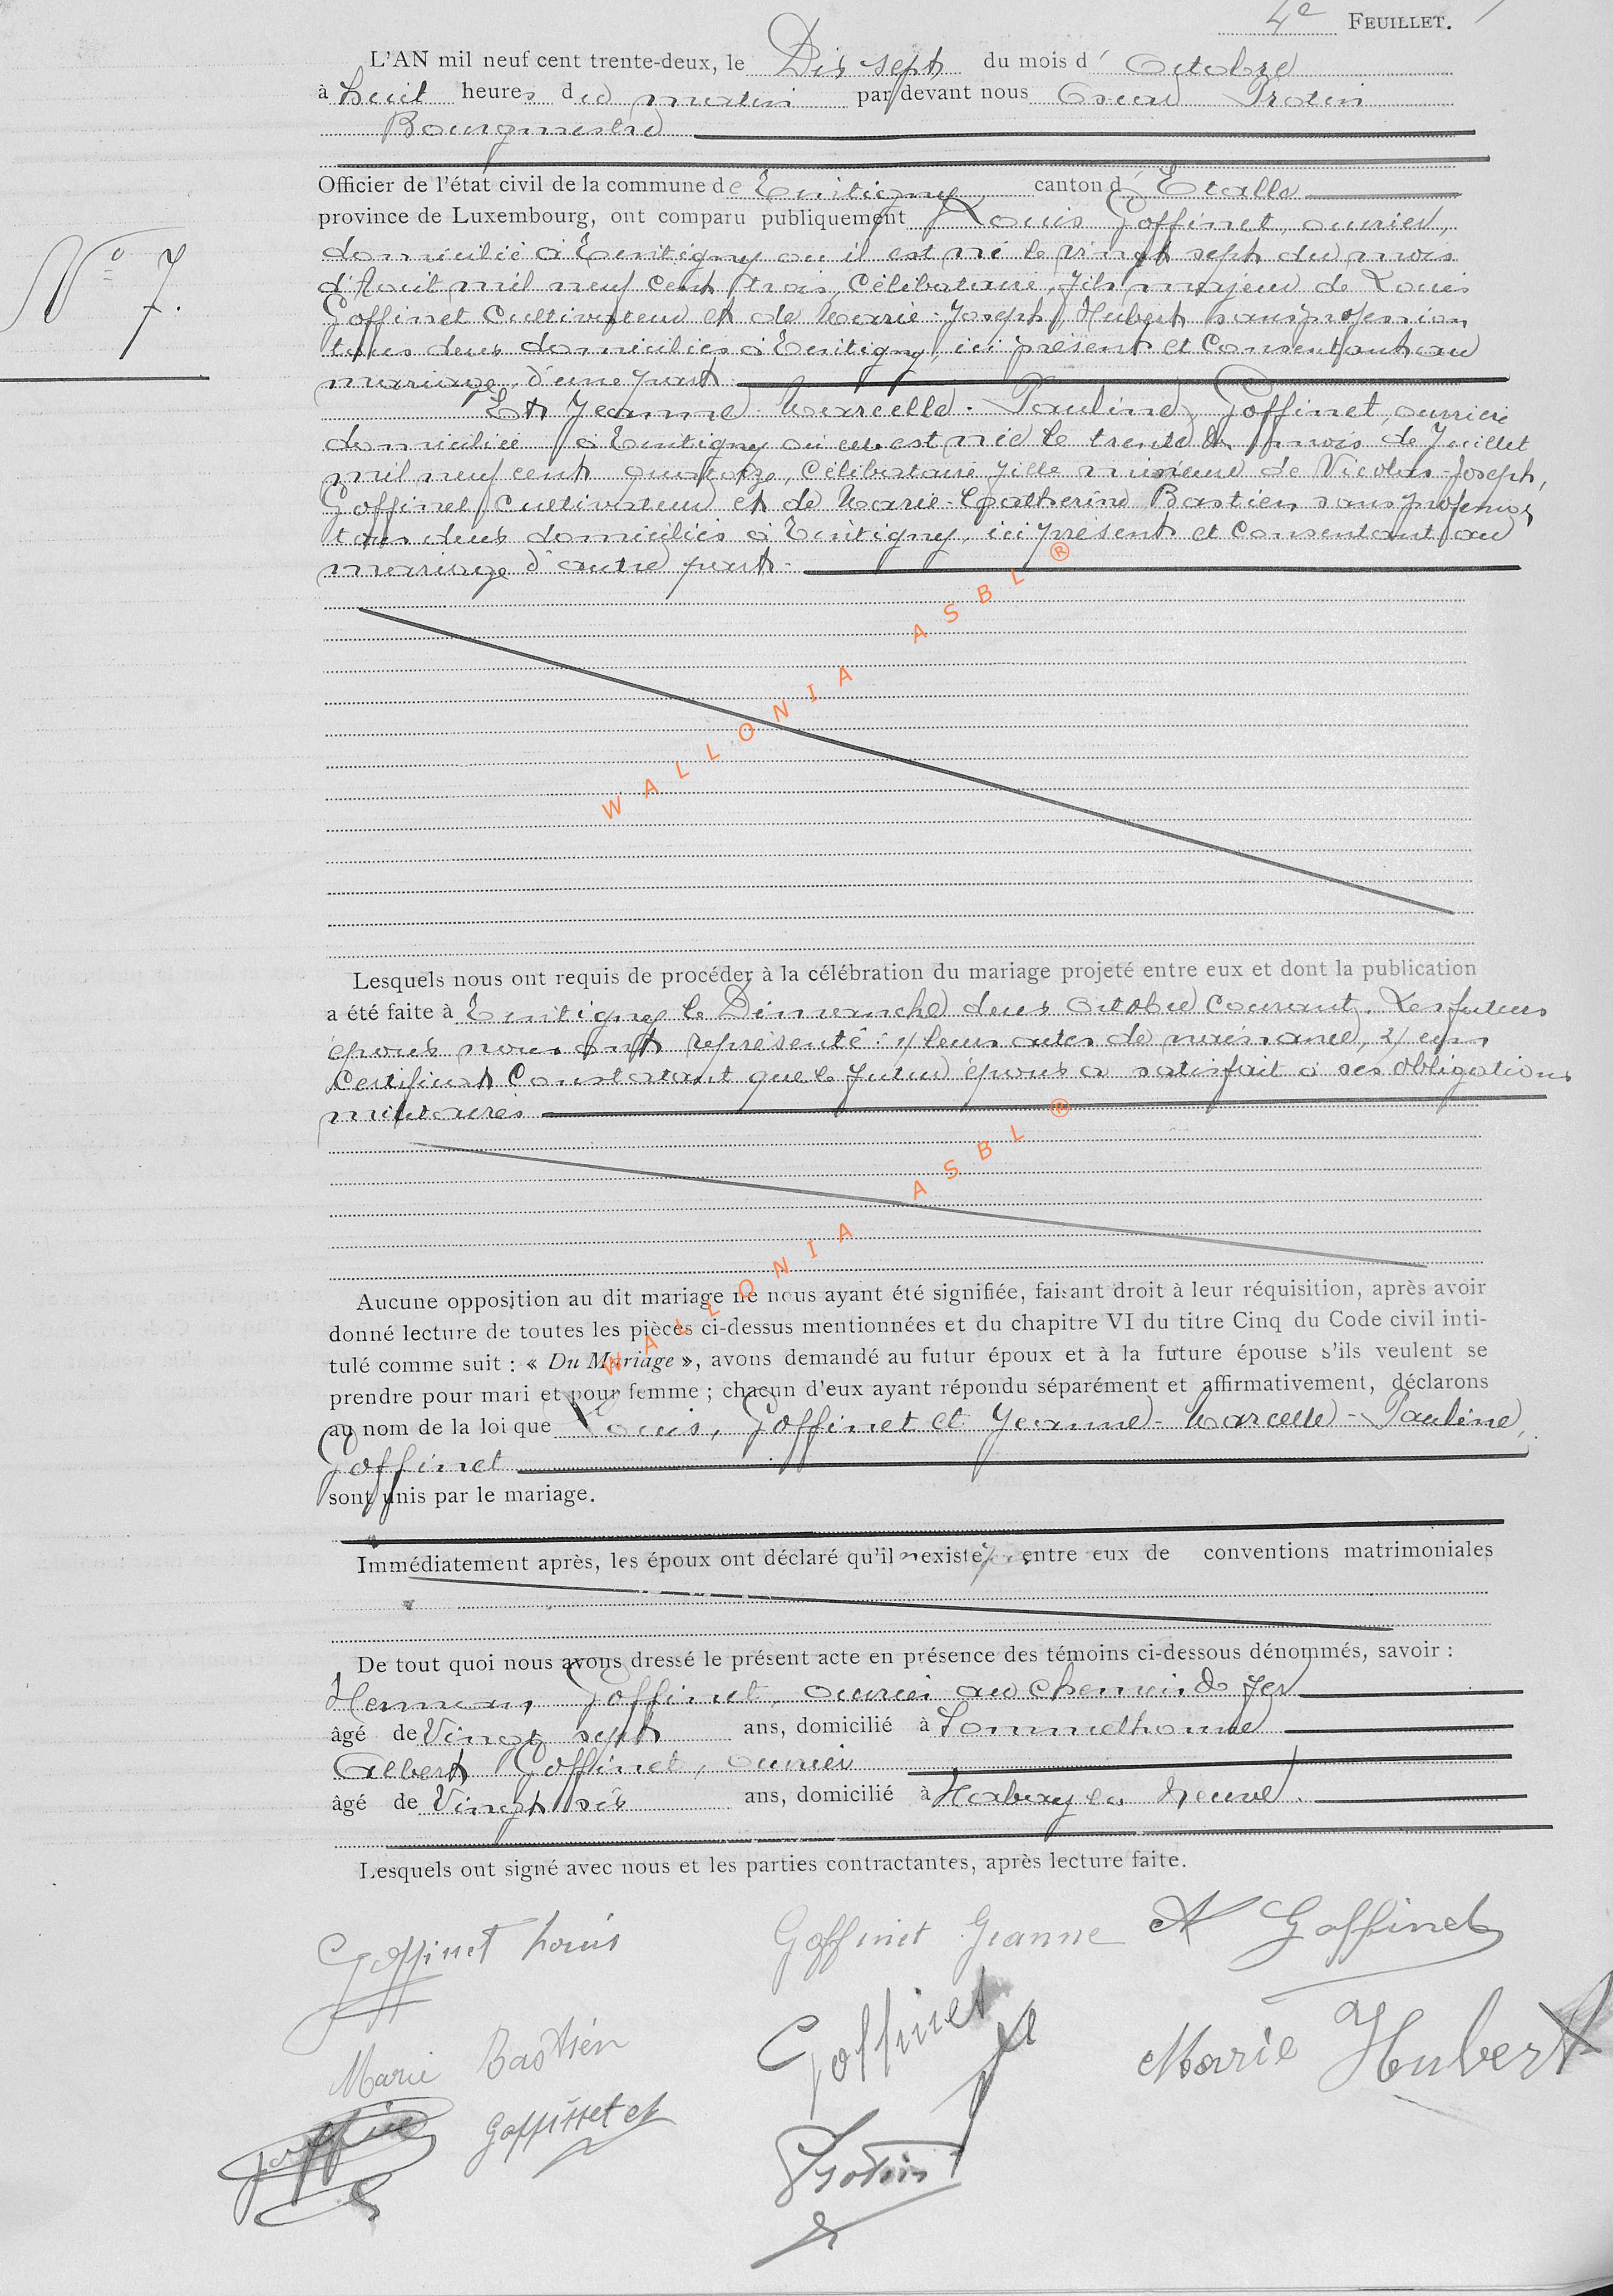 4e FEUILLET.
L'AN mil neuf cent trente-deux, le Dix sept du mois d' Octobre
à huit heures du matin par devant nous Oscar Protin
Bourgmestre
Officier de l'état civil de la commune de Tintigny canton d' Etalle
province de Luxembourg, ont comparu publiquement Louis Goffinet, ouvrier,
domicilié à Tintigny où il est né le vingt sept du mois
d'Août mil neuf cent trois, Célibataire, fils majeur de Louis
Goffinet Cultivateur et de Marie-Joseph, Hubert sans profession
tous deux domiciliés à Tintigny, ici présent et Consentant au
mariage, d'une part
N° 7.
Et Jeanne-Marcelle-Pauline, Goffinet, ouvrière
domiciliée à Tintigny où elle est née le trente du mois de Juillet
mil neuf cent quatorze, Célibataire fille mineure de Nicolas-Joseph,
Goffinet Cultivateur et de Marie-Catherine Bastien sans profession
tous deux domiciliés à Tintigny, ici présent et Consentant au
mariage d'autre part.
WALLONIA ASBL ®
Lesquels nous ont requis de procéder à la célébration du mariage projeté entre eux et dont la publication
a été faite à Tintigny le Dimanche deux Octobre Courant. Les futurs
époux nous ont représenté : 1/ leurs actes de naissance, 2/ un
Certificat Constatant que le futur époux a satisfait à ses obligations
militaires
WALLONIA ASBL ®
Aucune opposition au dit mariage ne nous ayant été signifiée, faisant droit à leur réquisition, après avoir
donné lecture de toutes les pièces ci-dessus mentionnées et du chapitre VI du titre Cinq du Code civil inti-
tulé comme suit : « Du Mariage », avons demandé au futur époux et à la future épouse s'ils veulent se
prendre pour mari et pour femme ; chacun d'eux ayant répondu séparément et affirmativement, déclarons
au nom de la loi que Louis, Goffinet et Jeanne-Marcelle-Pauline,
Goffinet
sont unis par le mariage.
Immédiatement après, les époux ont déclaré qu'il n'existe entre eux de conventions matrimoniales
De tout quoi nous avons dressé le présent acte en présence des témoins ci-dessous dénommés, savoir :
Herman, Goffinet, ouvrier au chemin de fer
âgé de Vingt sept ans, domicilié à Sommethonne
Albert Goffinet, ouvrier
âgé de Vingt six ans, domicilié à Habay la Neuve.
Lesquels ont signé avec nous et les parties contractantes, après lecture faite.
Goffinet Louis Goffinet Jeanne A Goffinet
Marie Bastien Goffinet Marie Hubert
Goffinet
Protin